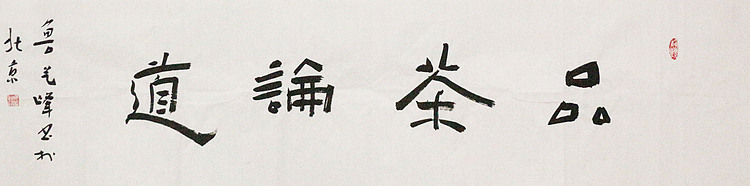 品茶論道
鲁光峰书於
北京